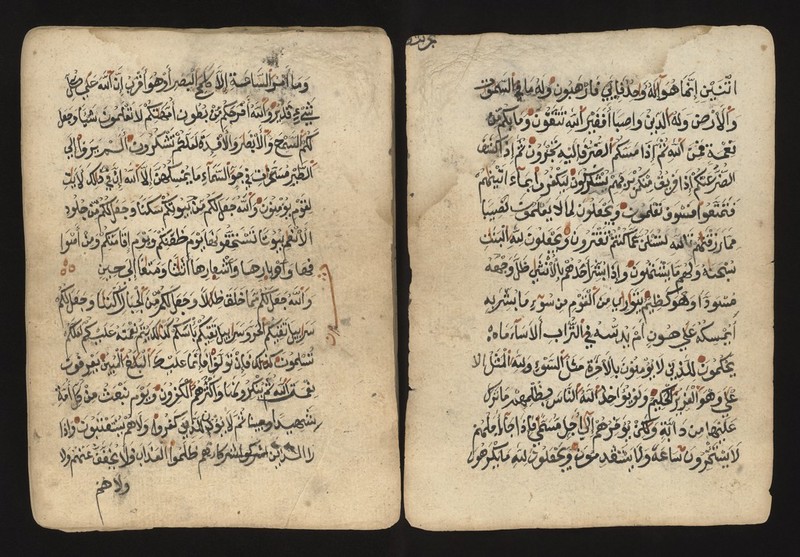 اثنين انما هو اله واحد فاياي فارهبون وله ما في السموت
والارض وله الدين واصبا افغير الله تتقون وما بكم من
نعمة فمن الله ثم اذا مسكم الضر فاليه تجئرون ثم اذا كشف
الضر عنكم اذا فريق منكم بربهم يشركون ليكفروا بما اتينهم
فتمتعوا فسوف تعلمون ويجعلون لما لا يعلمون نصيبا
مما رزقنهم تالله لتسئلن عما كنتم تفترون ويجعلون لله البنت
سبحنه ولهم ما يشتهون واذا بشر احدهم بالانثى ظل وجهه
مسودا وهو كظيم يتوارى من القوم من سوء ما بشر به
ايمسكه على هون ام يدسه في التراب الا ساء ما
يحكمون للذين لا يؤمنون بالاخرة مثل السوء ولله المثل الا
على وهو العزيز الحكيم ولو يؤاخذ الله الناس بظلمهم ما ترك
عليها من دابة ولكن يؤخرهم الى اجل مسمى فاذا جاء اجلهم
لا يستئخرون ساعة ولا يستقدمون ويجعلون لله ما يكرهون
وما امر الساعة الا كلمح البصر او هو اقرب ان الله على كل
شيء قدير والله اخرجكم من بطون امهتكم لا تعلمون شيا وجعل
لكم السمع والابصار والافدة لعلكم تشكرون الم يروا الى
الطير مسخرات في جو السماء ما يمسكهن الا الله ان في ذلك لايت
لقوم يومنون والله جعل لكم من بيوتكم سكنا وجعل لكم من جلود
الانعم بيوتا تستخفونها يوم ظعنكم ويوم اقامتكم ومن اصوا
فها واوبارها واشعارها اثثا ومتعا الى حين
والله جعل لكم مما خلق ظللا وجعل لكم من الجبال اكننا وجعل لكم
سرابيل تقيكم الحر وسرابيل تقيكم باسكم كذلك يتم نعمته عليكم لعلكم
تسلمون فان تولوا فانما عليك البلغ المبين يعرفون
نعمت الله ثم ينكرونها واكثرهم الكفرون ويوم نبعث من كل امة
شهيدا ثم لا يؤذن للذين كفروا ولا هم يستعتبون واذا
را الذين ظلموا العذاب فلا يخفف عنهم ولا
ولا هم